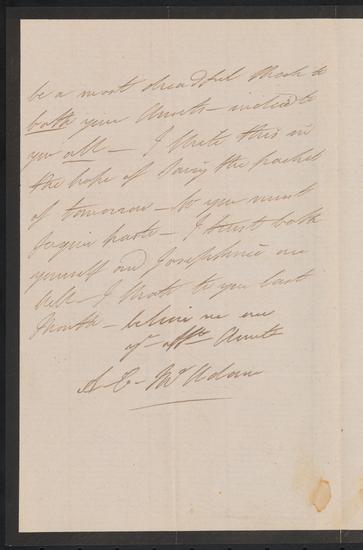 be a most dreadful shock to
both your Aunts - indeed to
you all - I write this in
the hope of saving the packet
of tomorrow - so you must
forgive haste - I trust both
yourself and Josephine are
well - I wrote to you last
Month - believe me ever
yr affte Aunt
A. C. McAdam